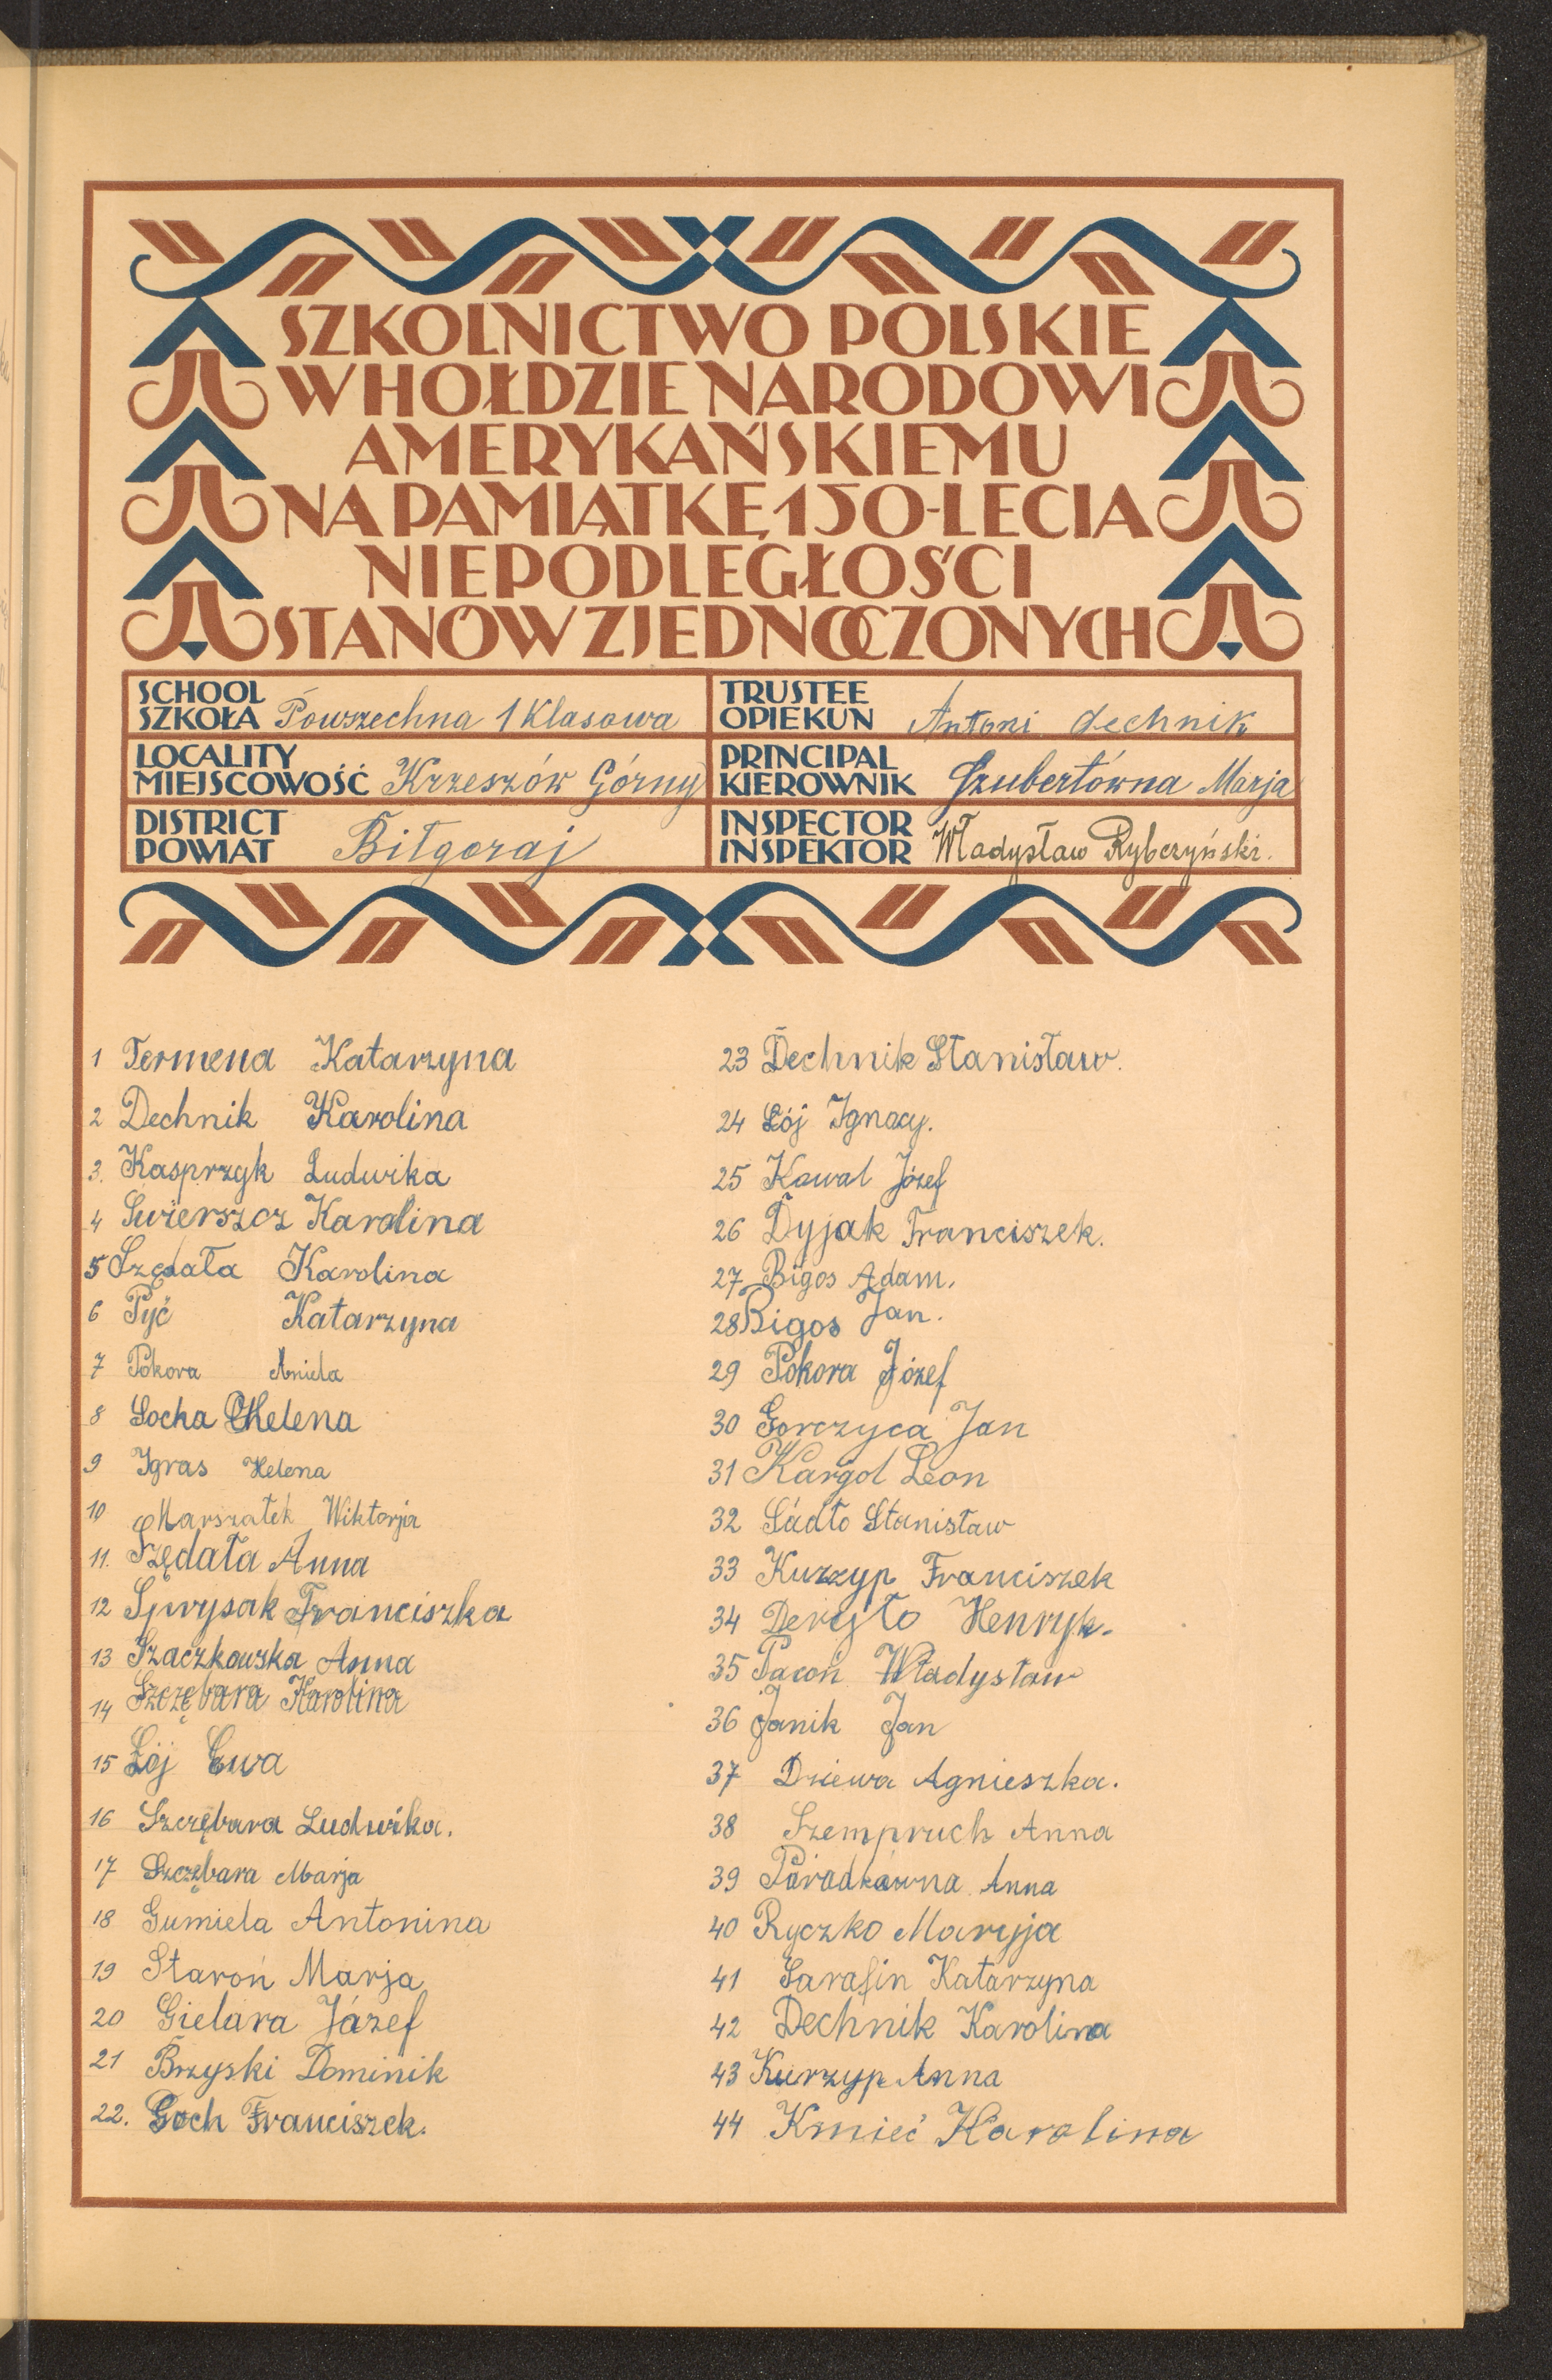 SZKOLNICTWO POLSKIE
W HOŁDZIE NARODOWI
AMERYKAŃSKIEMU
NA PAMIĄTKĘ 150-LECIA
NIEPODLEGŁOŚCI
STANÓW ZJEDNOCZONYCH
SCHOOL
SZKOŁA Powszechna 1 Klasowa
TRUSTEE
OPIEKUN Antoni Dechnik
LOCALITY
MIEJSCOWOŚĆ Krzeszów Górny
PRINCIPAL
KIEROWNIK Szubertówna Marja
DISTRICT
POWIAT Biłgoraj
INSPECTOR
INSPEKTOR Władysław Rybczyński.
1 Termena Katarzyna
2 Dechnik Karolina
3. Kasprzyk Ludwika
4 Swierszcz Karolina
5 Szędała Karolina
6 Pyć Katarzyna
7 Pokora Aniela
8 Socha Helena
9 Igras Helena
10 Marszałek Wiktorja
11. Szędała Anna
12 Sprysak Franciszka
13 Szaczkowska Anna
14 Szczębara Karolina
15 Łój Ewa
16 Szczębara Ludwika.
17 Szczębara Marja
18 Gumiela Antonina
19 Staroń Marja
20 Gielara Józef
21 Brzyski Dominik
22. Goch Franciszek.
23 Dechnik Stanisław.
24 Łój Ignacy.
25 Kowal Józef
26 Dyjak Franciszek.
27 Bigos Adam.
28 Bigos Jan.
29 Pokora Józef
30 Gorczyca Jan
31 Kargol Leon
32 Sadło Stanisław
33 Kurzyp Franciszek
34 Derejło Henryk.
35 Pacoń Władysław
36 Janik Jan
37 Dziewa Agnieszka.
38 Szempruch Anna
39 Paradkówna Anna
40 Ryczko Maryja
41 Sarafin Katarzyna
42 Dechnik Karolina
43 Kurzyp Anna
44 Kmieć Karolina